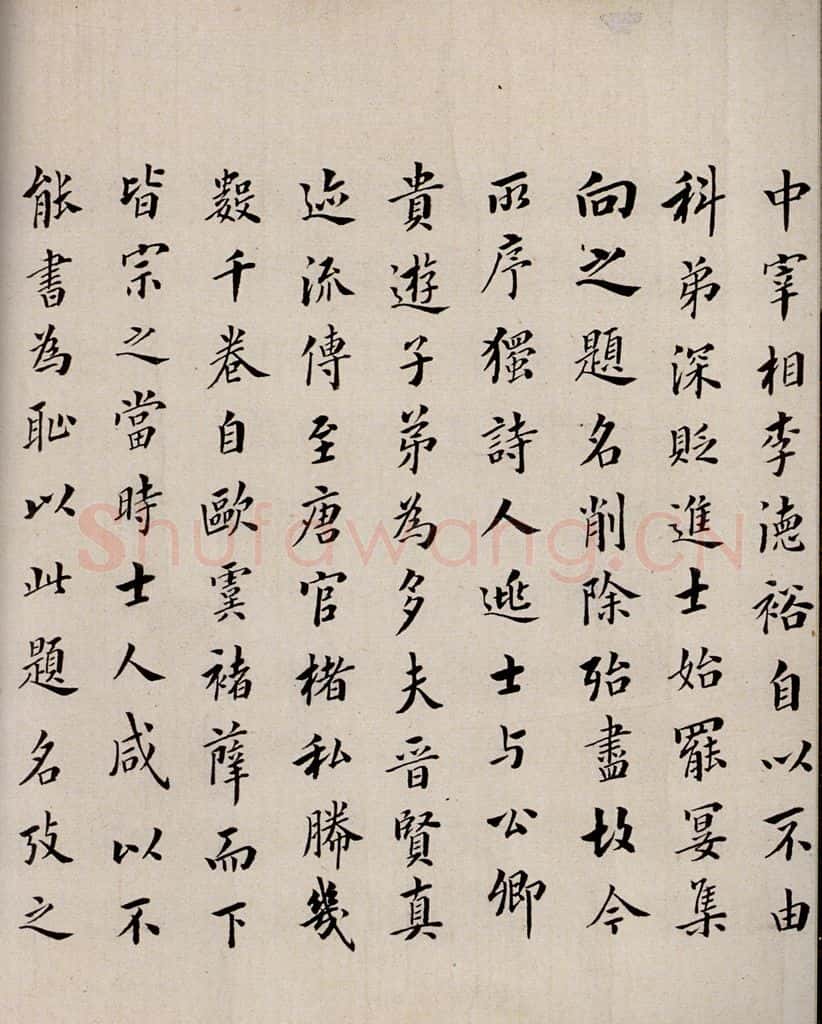 中宰相李德裕自以不由
科弟深貶進士始罷宴集
向之題名削除殆盡故今
所序獨詩人逃士与公卿
貴遊子弟為多夫晋賢真
迹流傳至唐官楮私縢幾
數千卷自歐虞褚薛而下
皆宗之當時士人咸以不
能書為恥以此題名攷之
Shufawang.CN